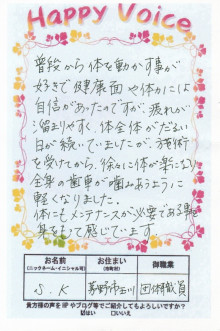 Happy Voice
普段から体を動かす事が
好きで健康面や体力には
自信があったのですが、疲れが
溜まりやすく、体全体がだるい
日が続いていましたが、施術
を受けてから、徐々に体が楽になり
全身の歯車が噛みあうように
軽くなりました。
体にもメンテナンスが必要である事を
身をもって感じています。
お名前
(ニックネーム・イニシャル可)
お住まい
(市町村)
御職業
S.K
茅野市玉川
団体職員
貴方様の声をHPやブログ等でご紹介してもよろしいですか?
はい □いいえ